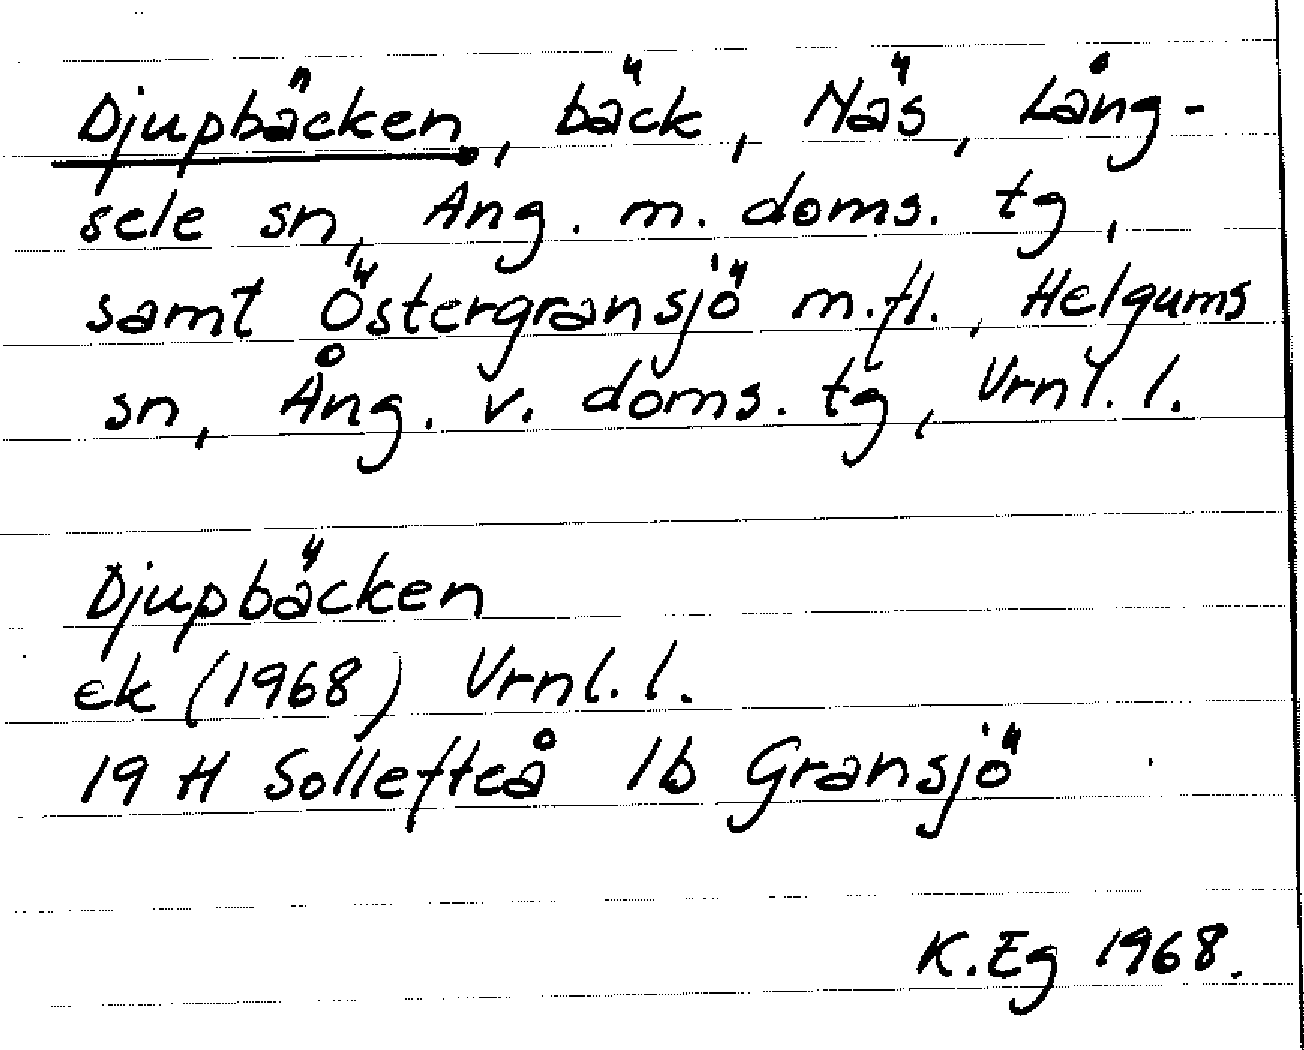 Djupbäcken, bäck, Näs, Lång-
sele sn, Ång. m. doms. tg,
samt Östergransjö m.fl., Helgums
sn, Ång. v. doms. tg, Vrnl. l.
Djupbäcken
ek (1968) Vrnl. l.
19 H Sollefteå 1b Gransjö
K.Eg 1968.